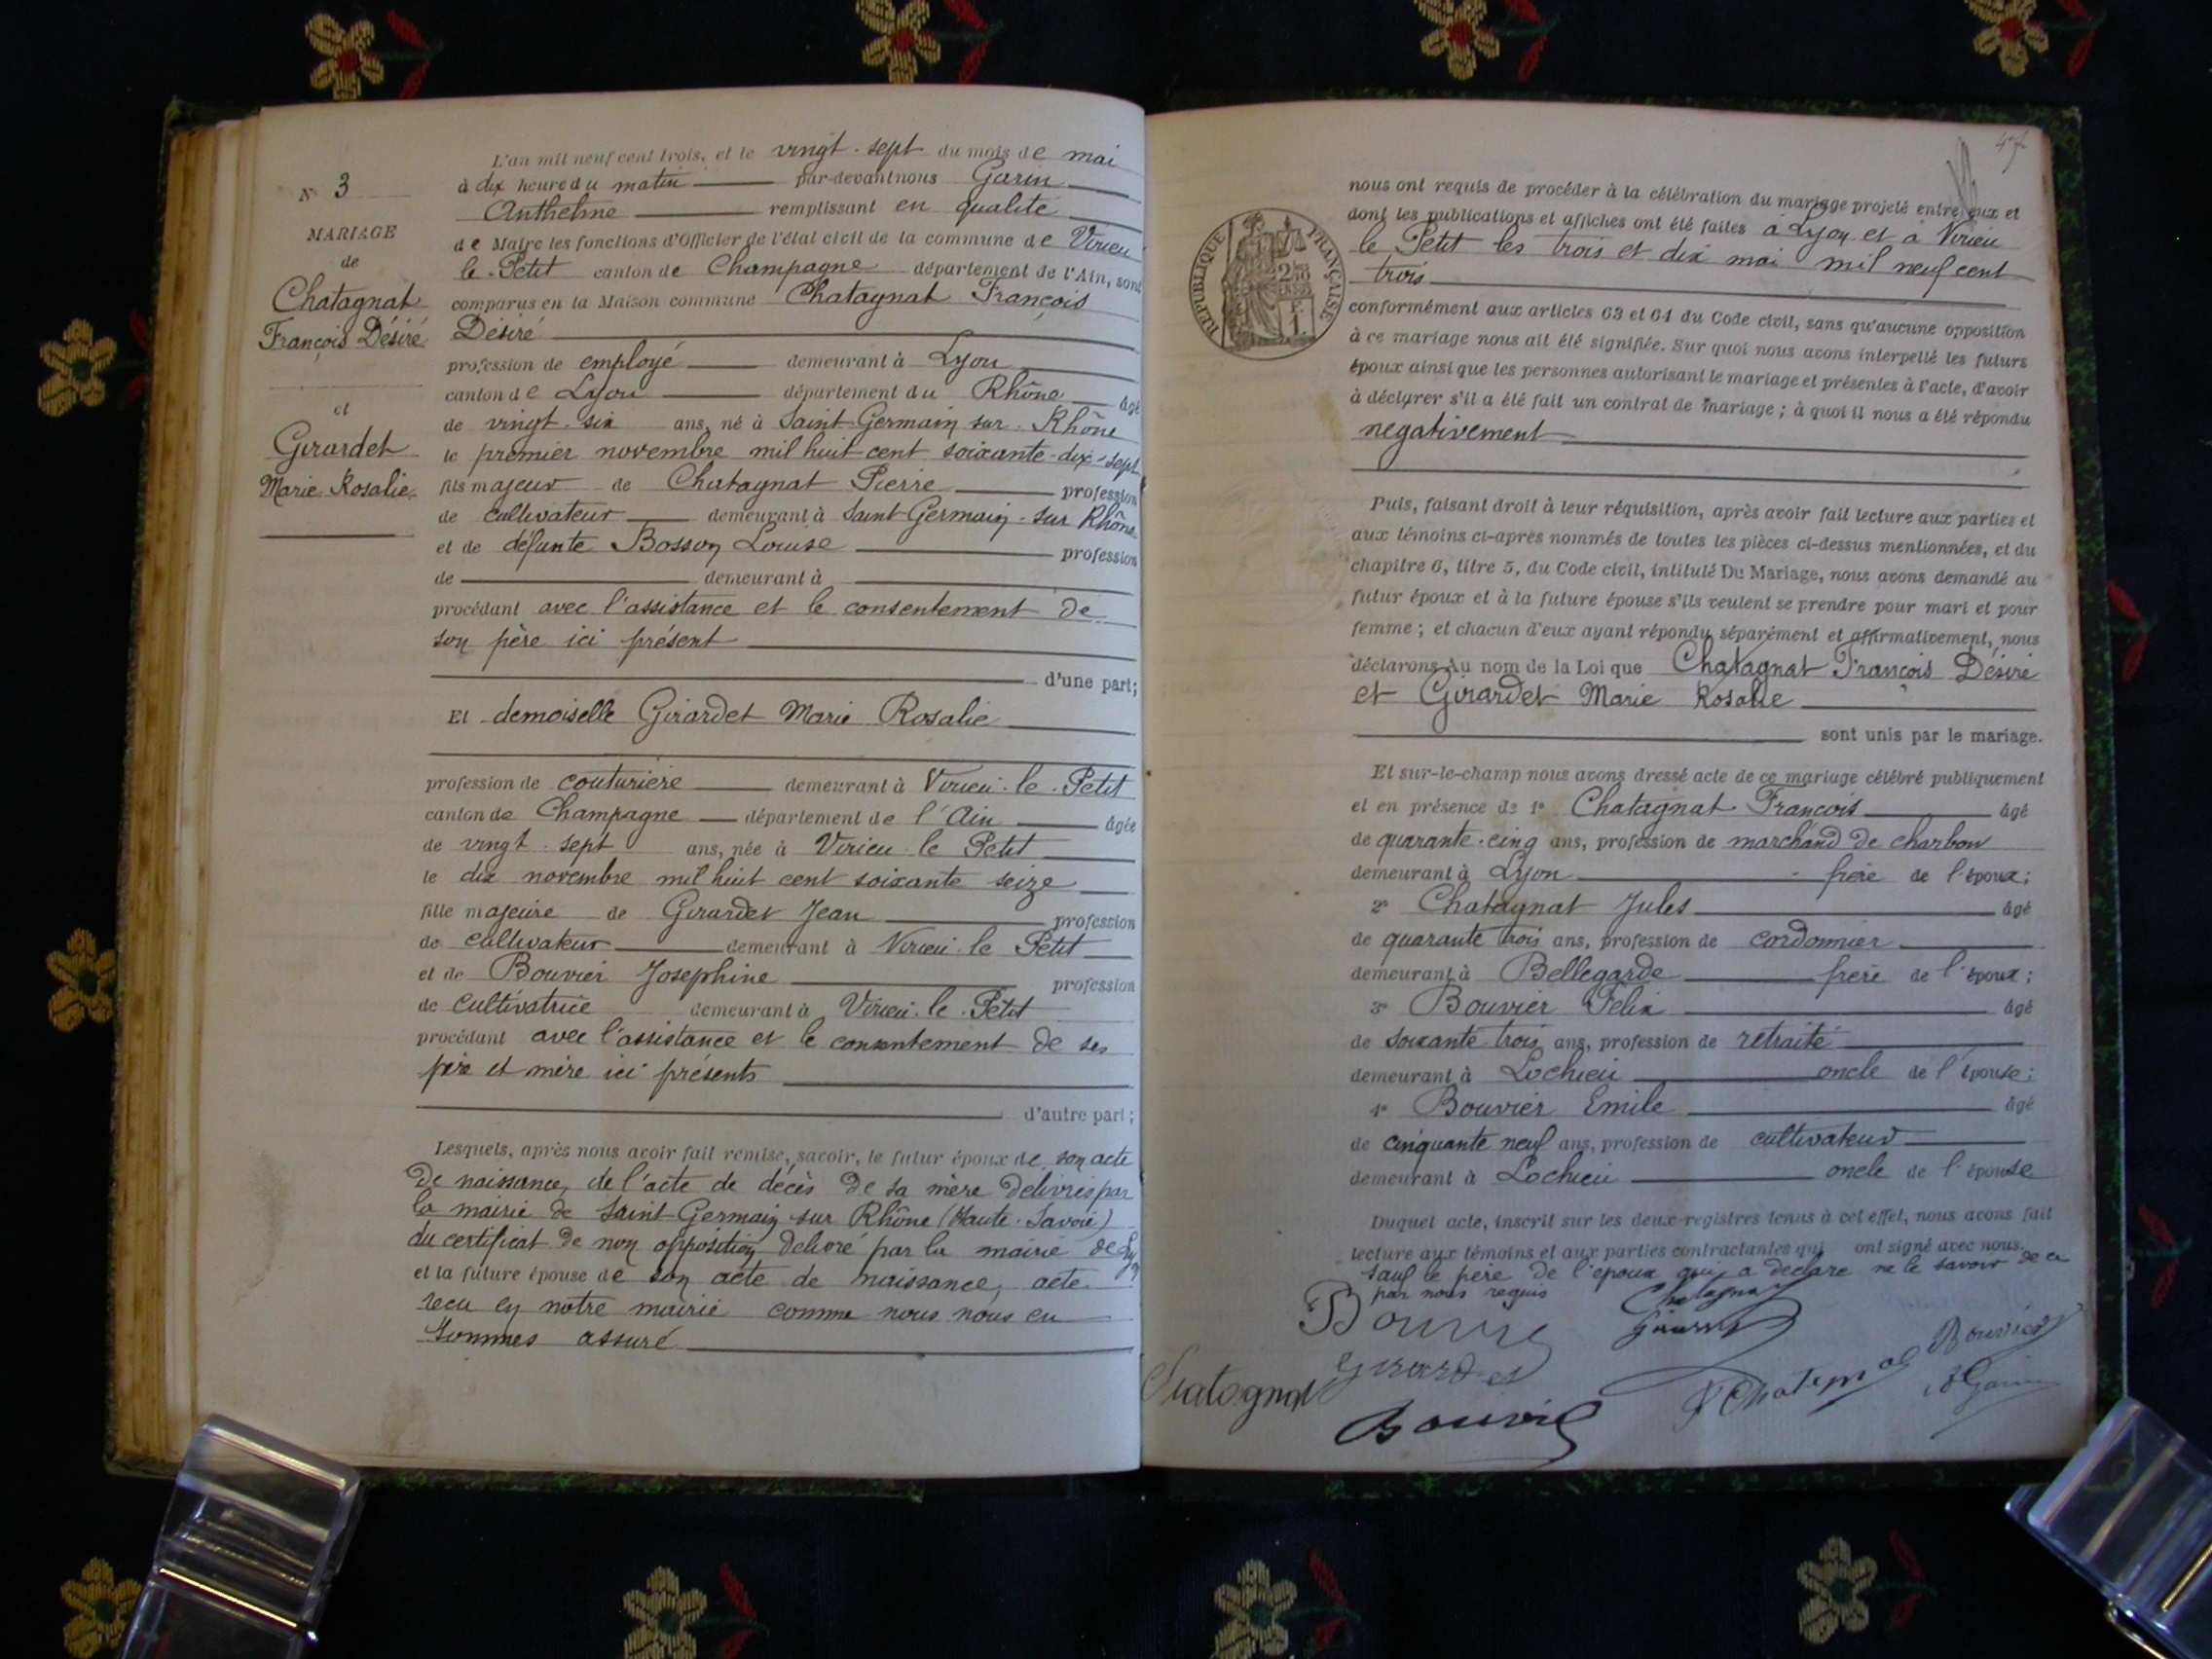 L'an mil neuf cent trois, et le vingt-sept du mois de mai
à dix heure du matin par-devant nous Garin
Anthelme remplissant en qualité
de Maire les fonctions d'Officier de l'état civil de la commune de Virieu
le-Petit canton de Champagne département de l'Ain, sont
comparus en la Maison commune Chatagnat François
Désiré
profession de employé demeurant à Lyon
canton de Lyon département du Rhône âgé
de vingt-six ans, né à Saint-Germain sur-Rhône
le premier novembre mil huit cent soixante-dix-sept
fils majeur de Chatagnat Pierre profession
de cultivateur demeurant à Saint Germain-sur Rhône
et de défunte Bosson Louise profession
de demeurant à
procédant avec l'assistance et le consentement de
son père ici présent
d'une part;
Et demoiselle Girardet Marie Rosalie
profession de couturière demeurant à Virieu-le-Petit
canton de Champagne département de l'Ain âgée
de vingt-sept ans, née à Virieu-le Petit
le dix novembre mil huit cent soixante seize
fille majeure de Girardet Jean profession
de cultivateur demeurant à Virieu-le Petit
et de Bouvier Josephine profession
de cultivatrice demeurant à Virieu-le-Petit
procédant avec l'assistance et le consentement de ses
père et mère ici présents
d'autre part;
Lesquels, après nous avoir fait remise, savoir, le futur époux de son acte
de naissance, de l'acte de décès de sa mère delivrés par
la mairie de Saint-Germain sur Rhône (Haute-Savoie)
du certificat de non opposition delivré par la mairie de Lyon
et la future épouse de son acte de naissance, acte
recu en notre mairie comme nous nous en
sommes assuré
N° 3
MARIAGE
de
Chatagnat
François Désiré
et
Girardet
Marie Rosalie
47
RÉPUBLIQUE FRANÇAISE
nous ont requis de procéder à la célébration du mariage projeté entre eux et
dont les publications et affiches ont été faites à Lyon et à Virieu
le Petit les trois et dix mai mil neuf cent
trois
conformément aux articles 63 et 64 du Code civil, sans qu'aucune opposition
à ce mariage nous ait été signifiée. Sur quoi nous avons interpellé les futurs
époux ainsi que les personnes autorisant le mariage et présentes à l'acte, d'avoir
à déclarer s'il a été fait un contrat de mariage; à quoi il nous a été répondu
negativement
Puis, faisant droit à leur réquisition, après avoir fait lecture aux parties et
aux témoins ci-après nommés de toutes les pièces ci-dessus mentionnées, et du
chapitre 6, titre 5, du Code civil, intitulé Du Mariage, nous avons demandé au
futur époux et à la future épouse s'ils veulent se prendre pour mari et pour
femme; et chacun d'eux ayant répondu séparément et affirmativement, nous
déclarons Au nom de la Loi que Chatagnat François Désiré
et Girardet Marie Rosalie
sont unis par le mariage.
Et sur-le-champ nous avons dressé acte de ce mariage célébré publiquement
et en présence de 1° Chatagnat François âgé
de quarante-cinq ans, profession de marchand de charbon
demeurant à Lyon frère de l'époux;
2° Chatagnat Jules âgé
de quarante trois ans, profession de cordonnier
demeurant à Bellegarde frère de l'époux;
3° Bouvier Felix âgé
de soixante trois ans, profession de retraité
demeurant à Lochieu oncle de l'épouse;
4° Bouvier Emile âgé
de cinquante neuf ans, profession de cultivateur
demeurant à Lochieu oncle de l'épouse
Duquel acte, inscrit sur les deux registres tenus à cet effet, nous avons fait
lecture aux témoins et aux parties contractantes qui ont signé avec nous.
sauf le père de l'époux qui a declare ne le savoir de ce
par nous requis Chatagnat
Girardet
Bouvier
Bouvier
Garin